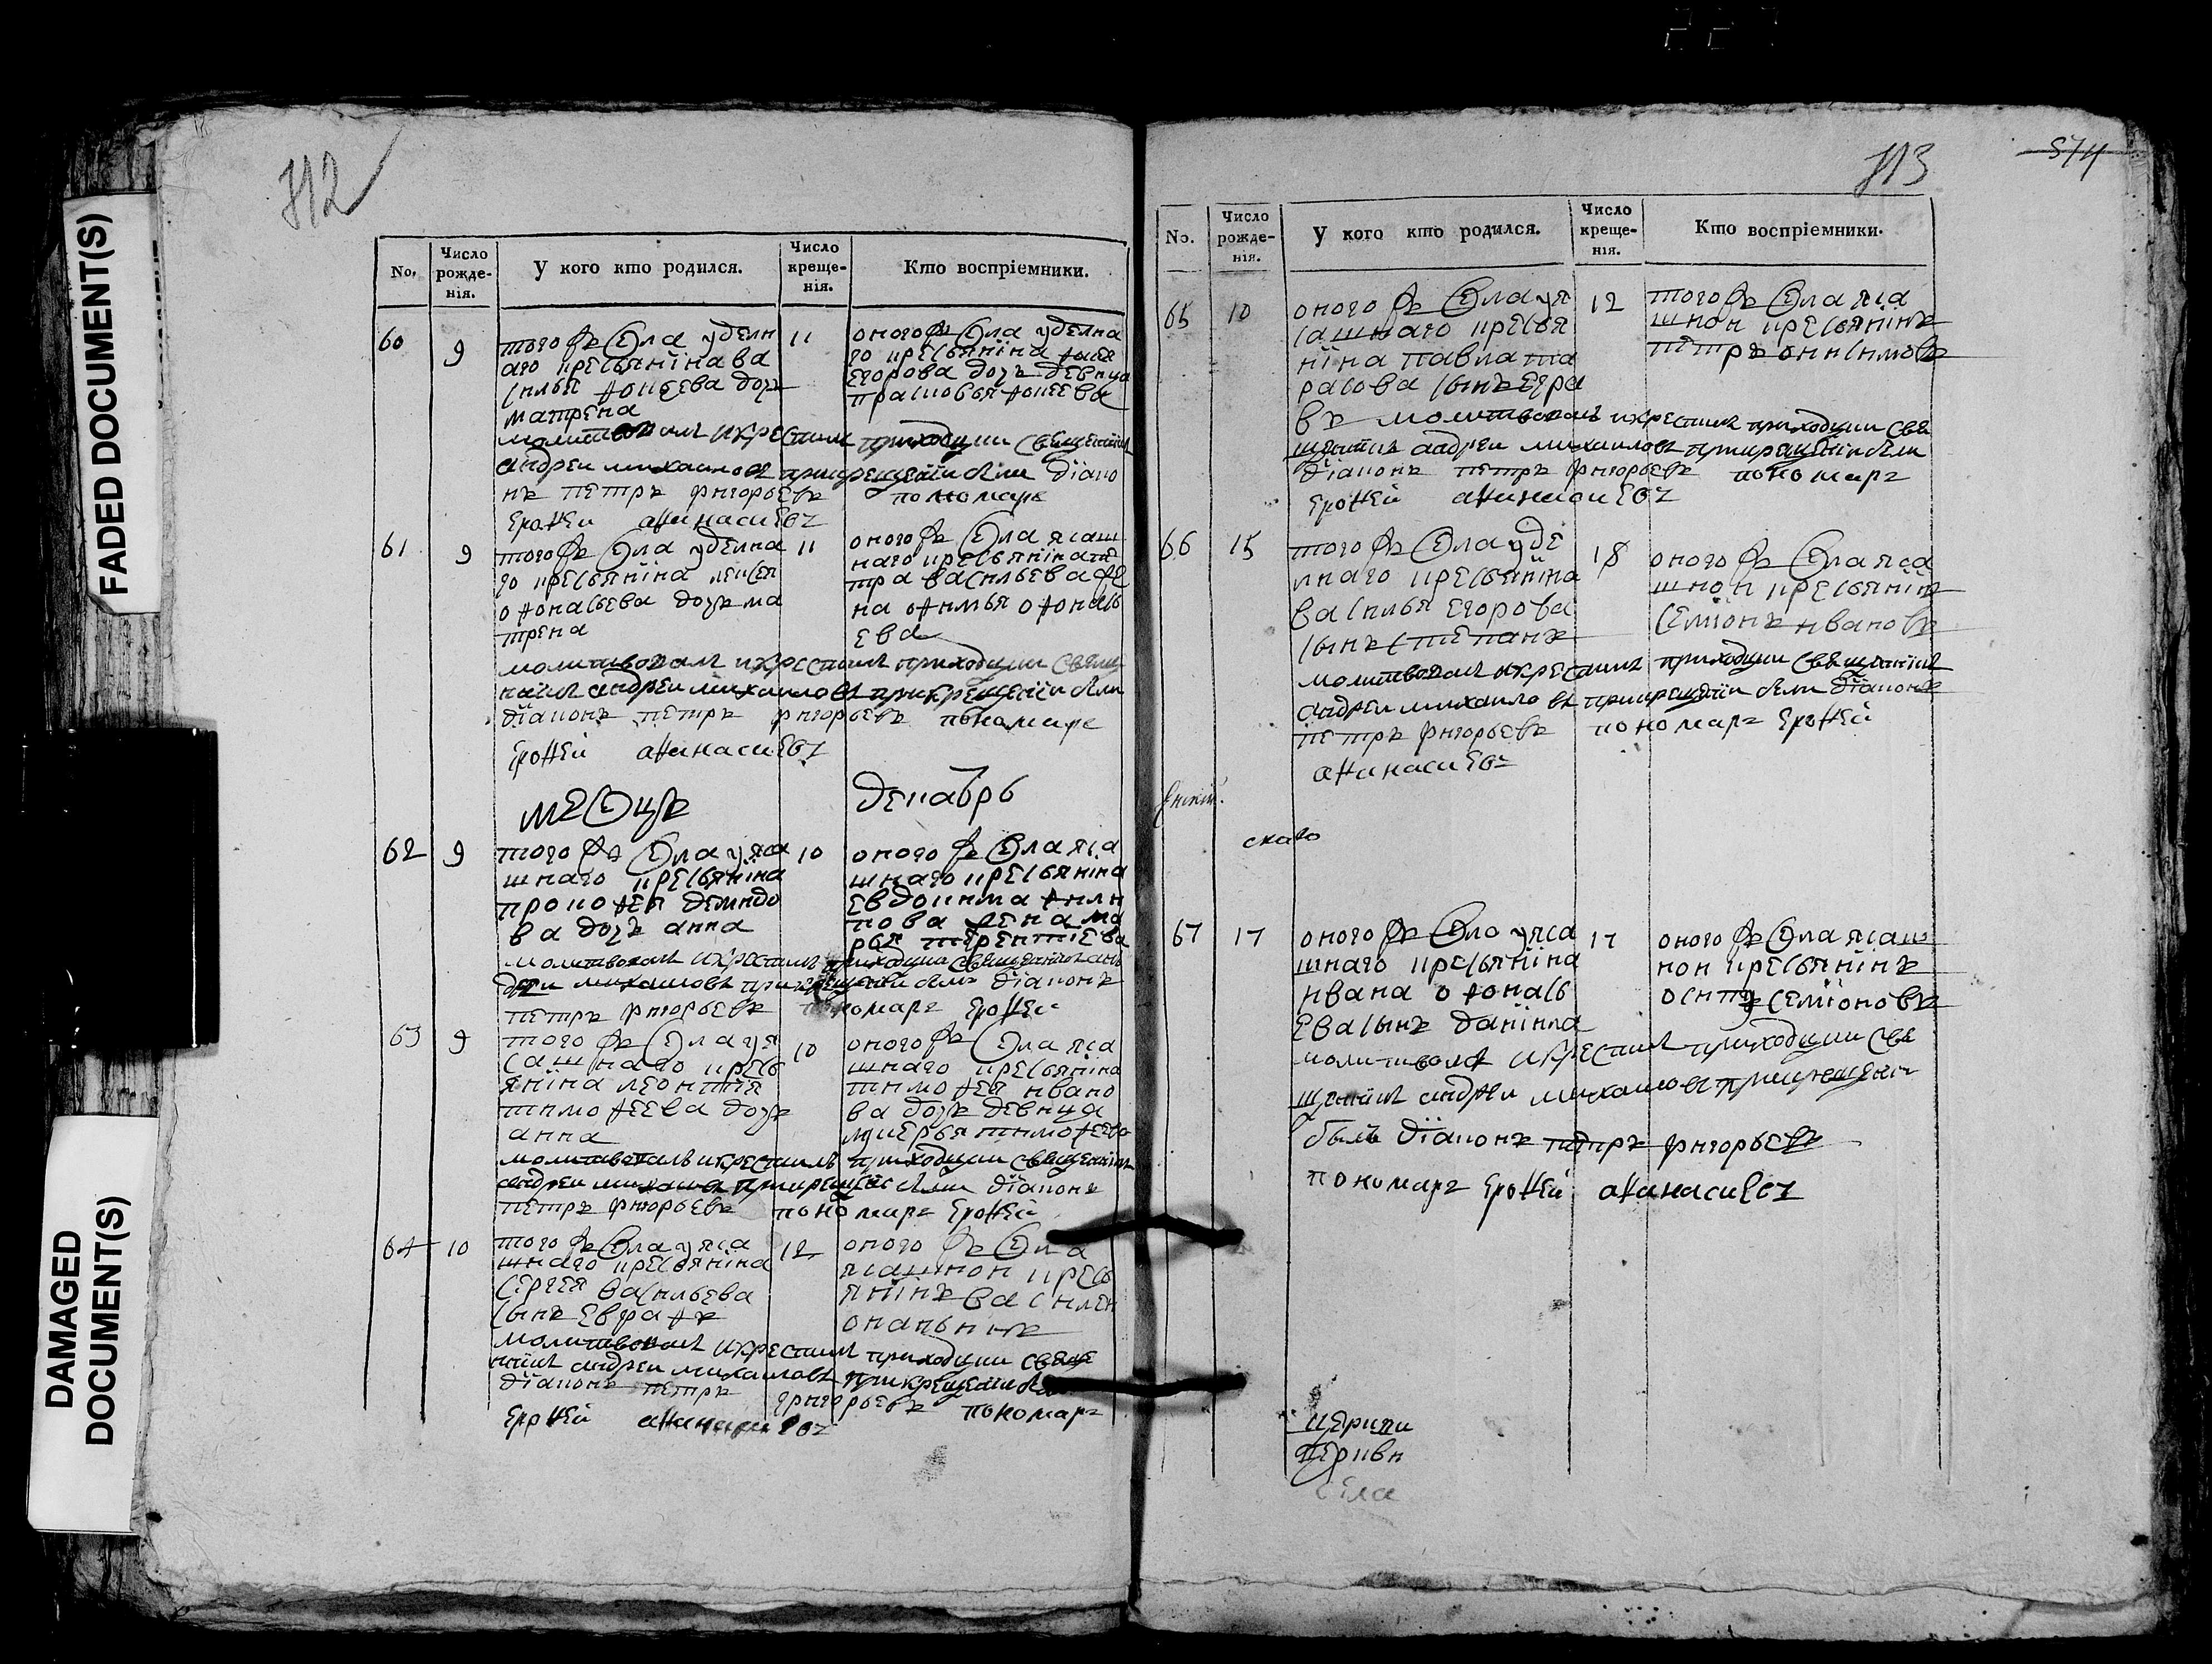 FADED DOCUMENT(S)
DAMAGED DOCUMENT(S)
712
No.
Число рожде-нія.
У кого кто родился.
Число креще-нія.
Кто воспріемники.
60
9
того жъ села уделн
аго кресьянїнава
силья фокеева дочь
матрена
11
оногожъ села уделна
го кресьянїна фоке
егорова дочь девица
прасковья фокеева
молитвовалъ икрестилъ приходции священїикъ
андреи михаиловъ прикрещенїи были дїако
нъ петръ фигорьевъ пономарь
Ероѳей аѳанасиевъ
61
9
того жъ села уделна
го кресьянїна алексея
офонасьева дочь ма
трена
11
оного жъ села ясаш
наго кресьянїна пе
тра васильева же
на офимья офонась
ева
молитвовалъ икрестилъ приходции свящ
наикъ андреи михаиловъ прикрещенїи были
дїаконъ петръ фигорьевъ пономарь
Ероѳей аѳанасиевъ
месецъ декабрь
62
9
того жъ села уяса
шнаго кресьянїна
прокофея демидо
ва дочь анна
10
оного жъ села яса
шнаго кресьянїна
евдокима фили
пова жена ма
рья терентїева
молитвовалъ икрестилъ приходции священїикъ ан
дреи михаиловъ прикрещенїи были дїаконъ
петръ фигорьевъ пономарь Ероѳей
63
9
того жъ села уя
сашнаго кресь
янїна леонтїя
тимофеева дочь
анна
10
оного жъ села яса
шнаго кресьянїна
тимофея ивано
ва дочь девица
лукерья тимофеева
молитвовалъ икрестилъ приходции священїикъ
андреи михаиловъ прикрещенїи были дїаконъ
петръ фигорьевъ пономарь Ероѳей
64
10
того жъ села уяса
шнаго кресьянїна
сергея васильева
сынъ евграфъ
12
оного жъ села
ясашнои кресь
янїнъ василеи
молитвовалъ икрестилъ приходции свяще
наикъ андреи михаиловъ прикрещенїи
дїаконъ петръ григорьевъ пономарь
Ероѳей аѳанасиевъ
713
574
No.
Число рожде-нія.
У кого кто родился.
Число креще-нія.
Кто воспріемники.
65
10
оного жъ села уя
сашнаго кресья
нїна павла та
расова сынъ егра
въ
12
того жъ села яса
шнои кресьянїнъ
петръ онисимовъ
молитвовалъ икрестилъ приходции свя
щенникъ андреи михаиловъ прикрещенїи были
дїаконъ петръ фигорьевъ пономарь
Ероѳей аѳанасиевъ
66
15
того жъ села уде
лнаго кресьянїна
василья егорова
сынъ степанъ
18
оного жъ села яса
шнои кресьянїнъ
семїонъ ивановъ
молитвовалъ икрестилъ приходции священїикъ
андреи михаиловъ прикрещенїи были дїаконъ
петръ фигорьевъ пономарь Ероѳей
аѳанасиевъ
скаго
67
17
оного жъ села уяса
шнаго кресьянїна
ивана офонась
ева сынъ данїила
17
оного жъ села ясаш
нои кресьянїнъ
осипъ семїоновъ
молитвовалъ икрестилъ приходции свя
щенїикъ андреи михаиловъ прикрещенїи
былъ дїаконъ петръ фигорьевъ
пономарь Ероѳей аѳанасиевъ
церкви
села